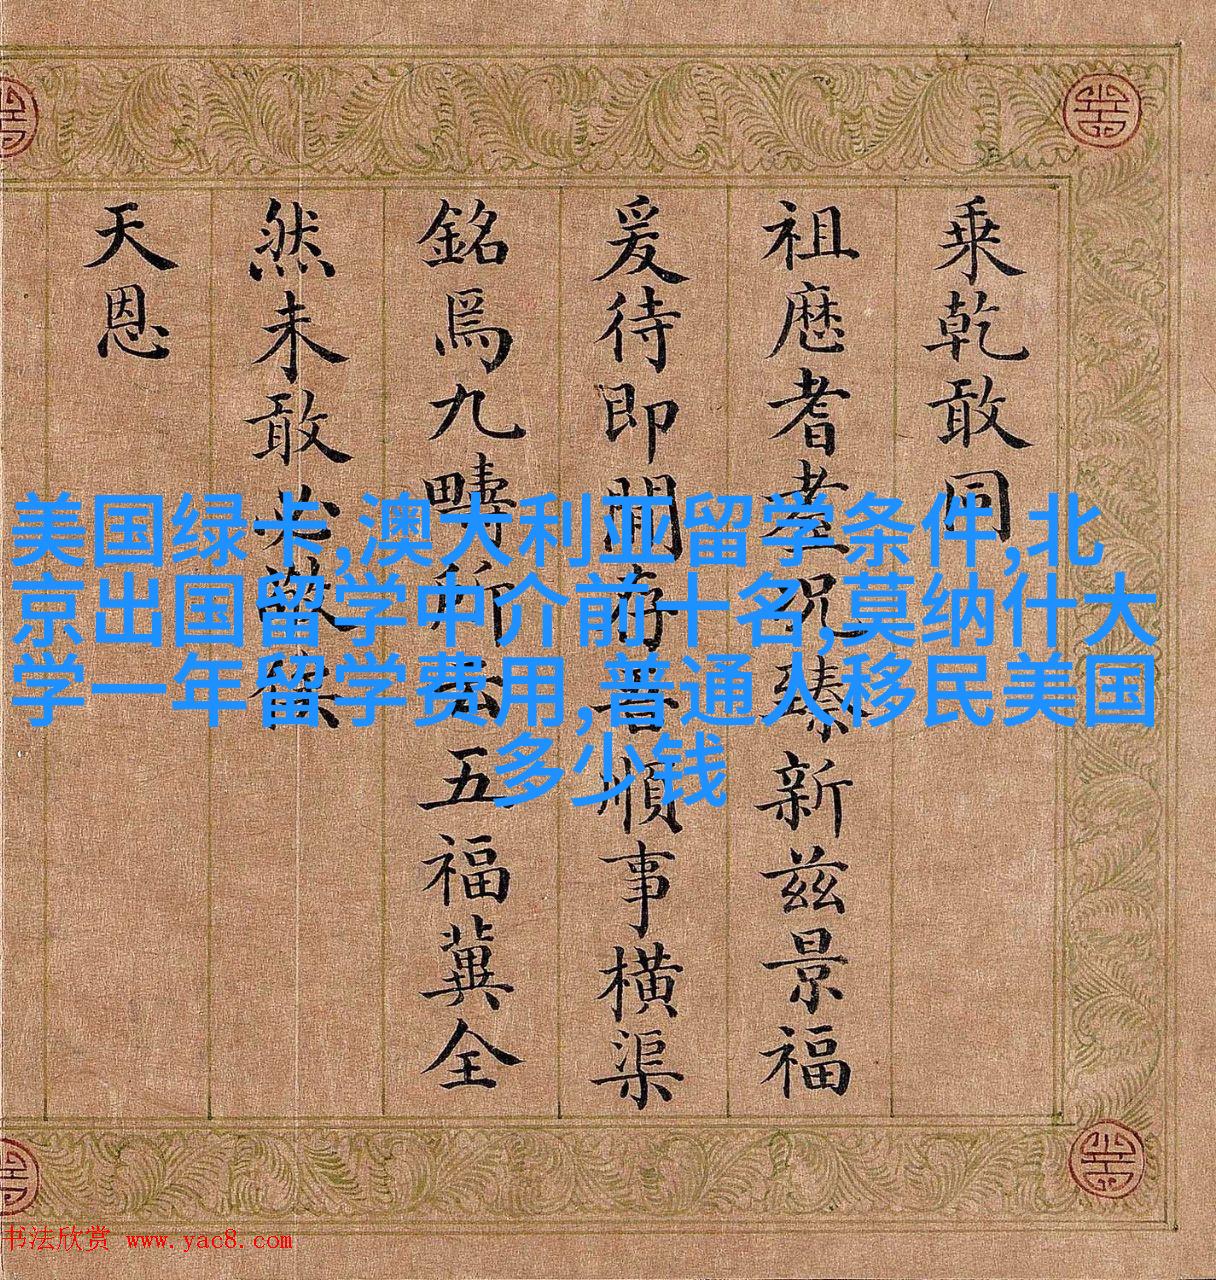 乗乾敢同
祖歴耆祝臻新兹景福
爰待即閒存順事橫渠
銘爲九疇所五福冀全
然未敢必敬俟
天恩
美国绿卡,澳大利亚留学条件,北
京出国留学中介前十名,莫纳什大
学一年留学费用,普通人移民美国
多少钱
书法欣赏 www.yac8.com